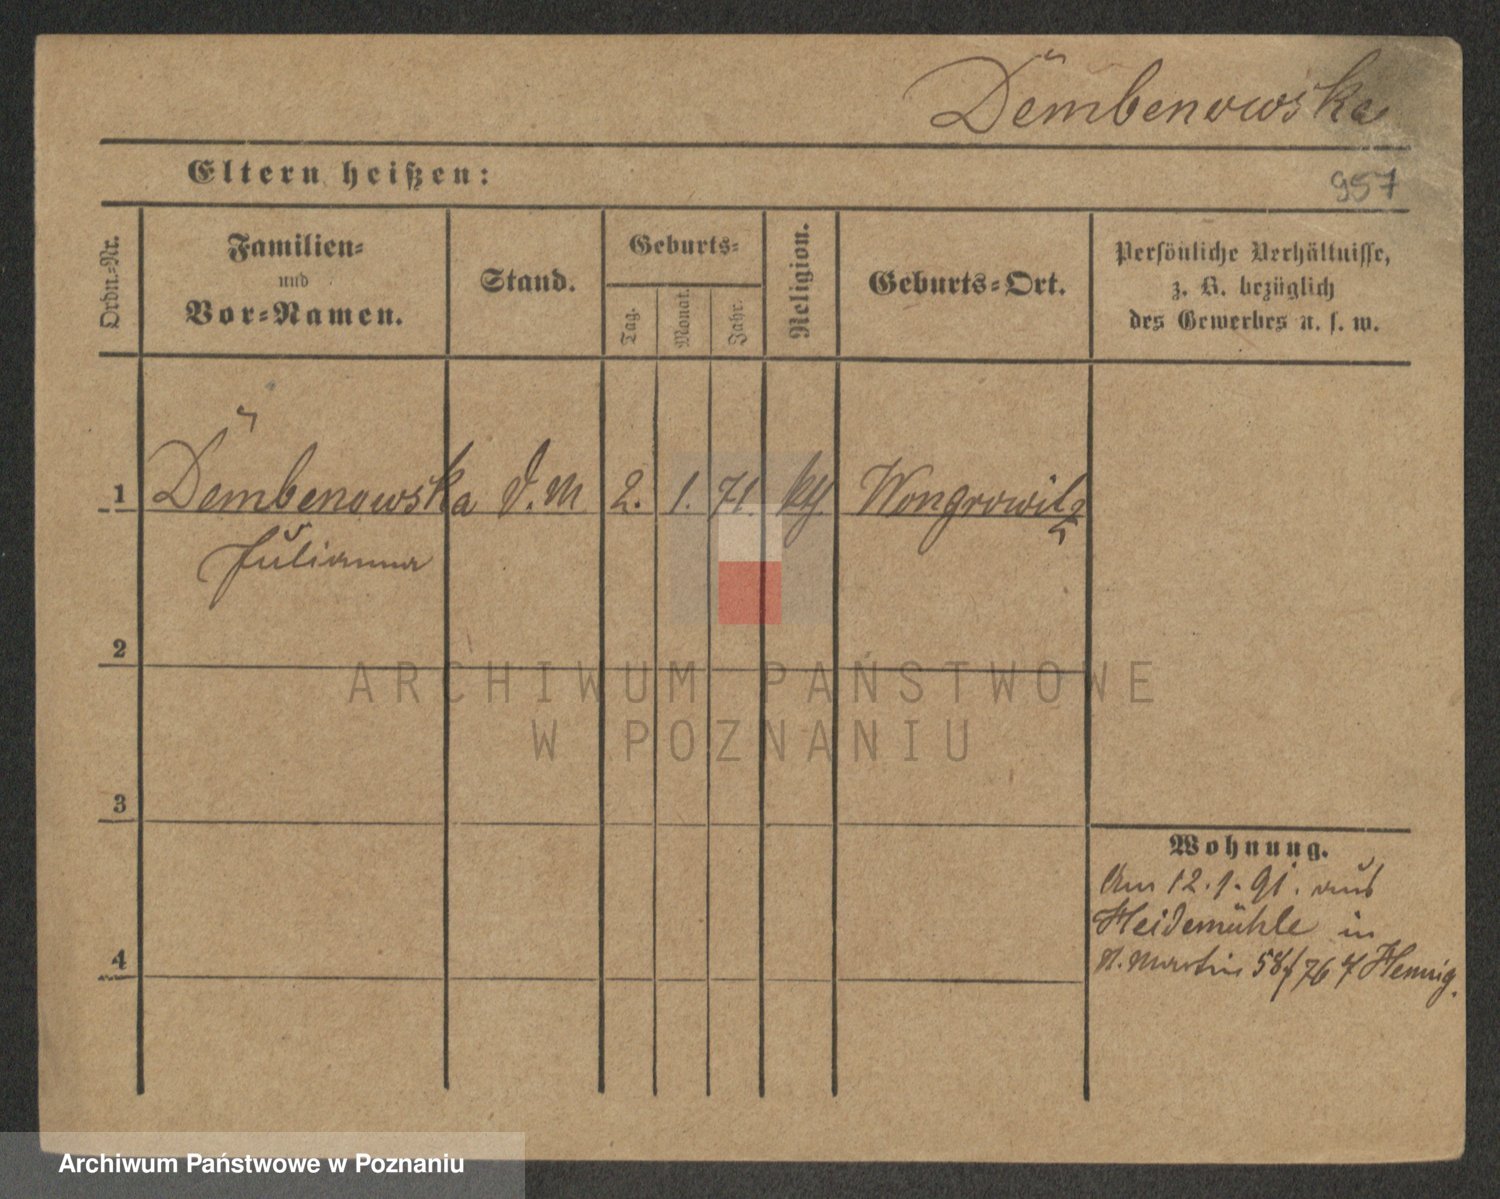 Dembenowska
Eltern heißen:
957
Ordn.=Nr.
Familien=
und
Vor=Namen.
Stand.
Geburts=
Tag.
Monat.
Jahr.
Religion.
Geburts=Ort.
Persönliche Verhältnisse,
z. B. bezüglich
des Gewerbes u. s. w.
1 Dembenowska D. M 2. 1. 71. kth Wongrowitz
Julianna
2
ARCHIWUM PAŃSTWOWE
W POZNANIU
3
Wohnung.
Am 12.1.91. aus
Heidemühle in
St. Martin 58/76 Hennig.
4
Archiwum Państwowe w Poznaniu